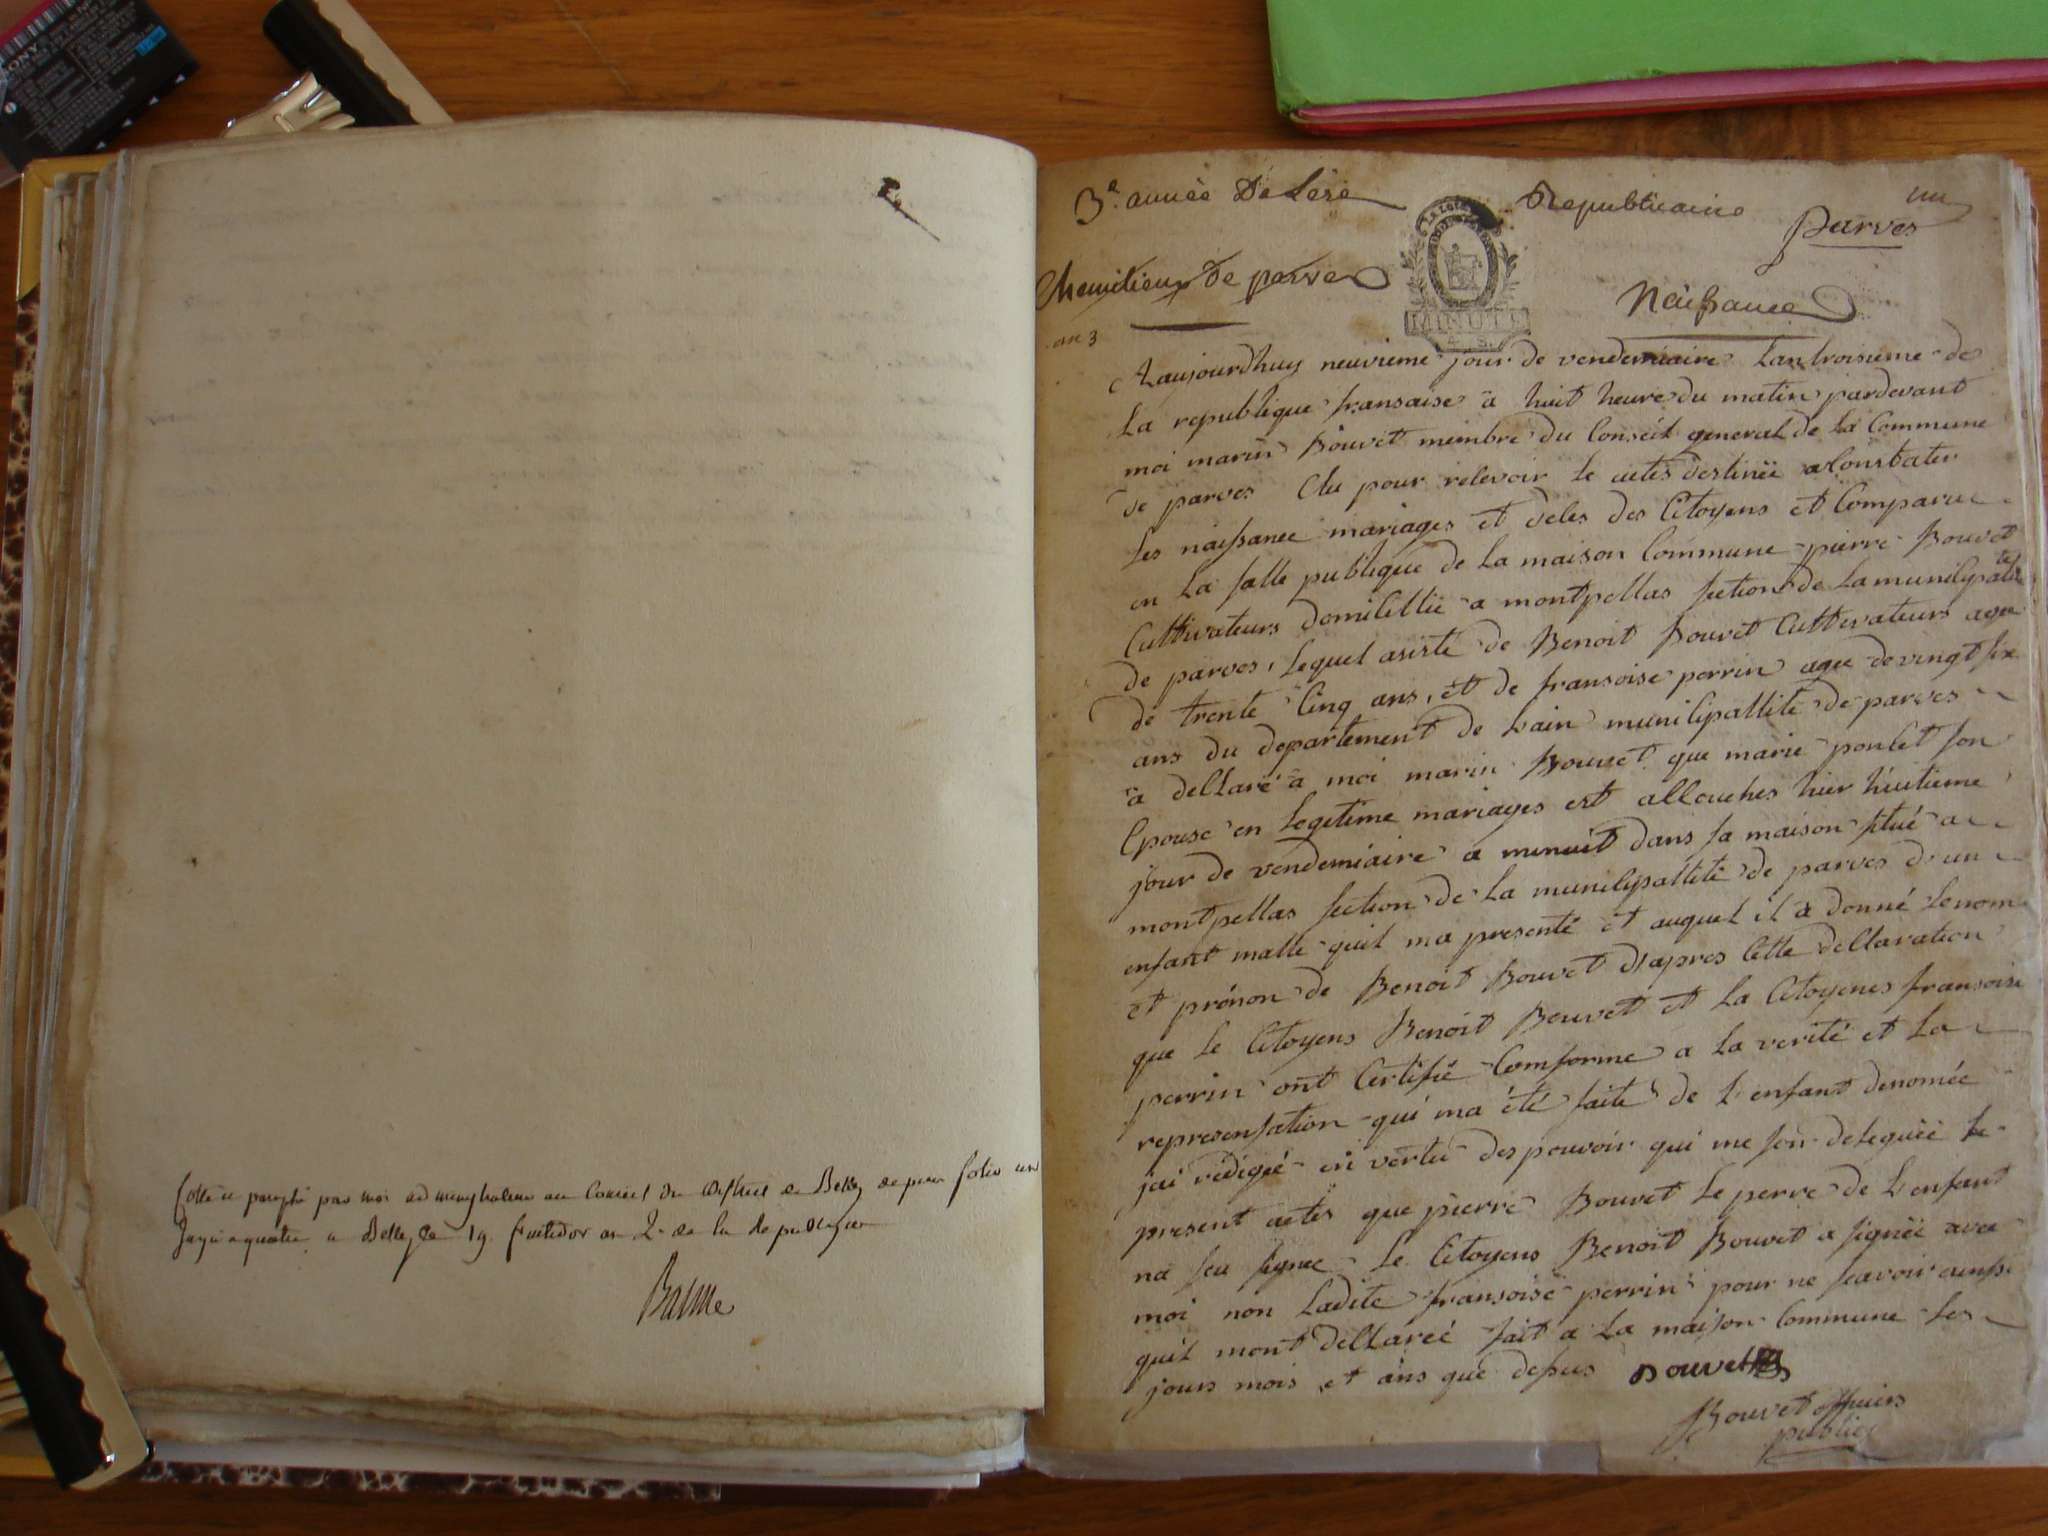 Cotté et paraphé par moi administrateur au Conseil du District de Belley depuis folio un
jusqu'a quatre a Belley le 19 fructidor an 2e de la Republique
Balme
3e année De Lère Republicaine
un
parves
Chemilieux De parves
an 3
LA LOI
MINUTE
Naissance
Aujourdhuy neuvieme jour de vendemiaire Lan troisieme de
La republique fransaise a huit heure du matin pardevant
moi marin Bouvet membre du Conseil general de la Commune
de parves Elu pour relevoir le actes destinée a Constater
les naissance mariages et deces des Citoyens et Comparu
en La salle publique de la maison Commune pierre Bouvet
Cultivateurs domicillié a montpellas section de La municipalité
de parves, lequel asisté de Benoit Bouvet Cultivateurs agée
de trente Cinq ans, et de fransoise perrin agée de vingt six
ans du departement de Lain municipallité de parves
a declaré a moi marin Bouvet que marie pontet son
Epouse en legetime mariages est accouchés hier huitieme
jour de vendemiaire a minuit dans sa maison situé a
montpellas section de La municipallité de parves d un
enfant malle quil ma presenté et auquel il a donné Le nom
et prénon de Benoit Bouvet d'apres Cette declaration
que le Citoyens Benoit Bouvet et La Citoyenes fransoise
perrin ont Certifié Comforme a la verité et La
representation qui ma été faite de l'enfant denomée
jai rédigé en vertu des pouvoir qui me son deleguée le
present actes que pierre Bouvet le perre de l'enfant
na seu signee Le Citoyens Benoit Bouvet a signée avec
moi non Ladite fransoise perrin pour ne scavoir ainsi
quil mont declareé fait a La maison Commune les
jours mois et ans que dessus Bouvet
Bouvet officiers
public